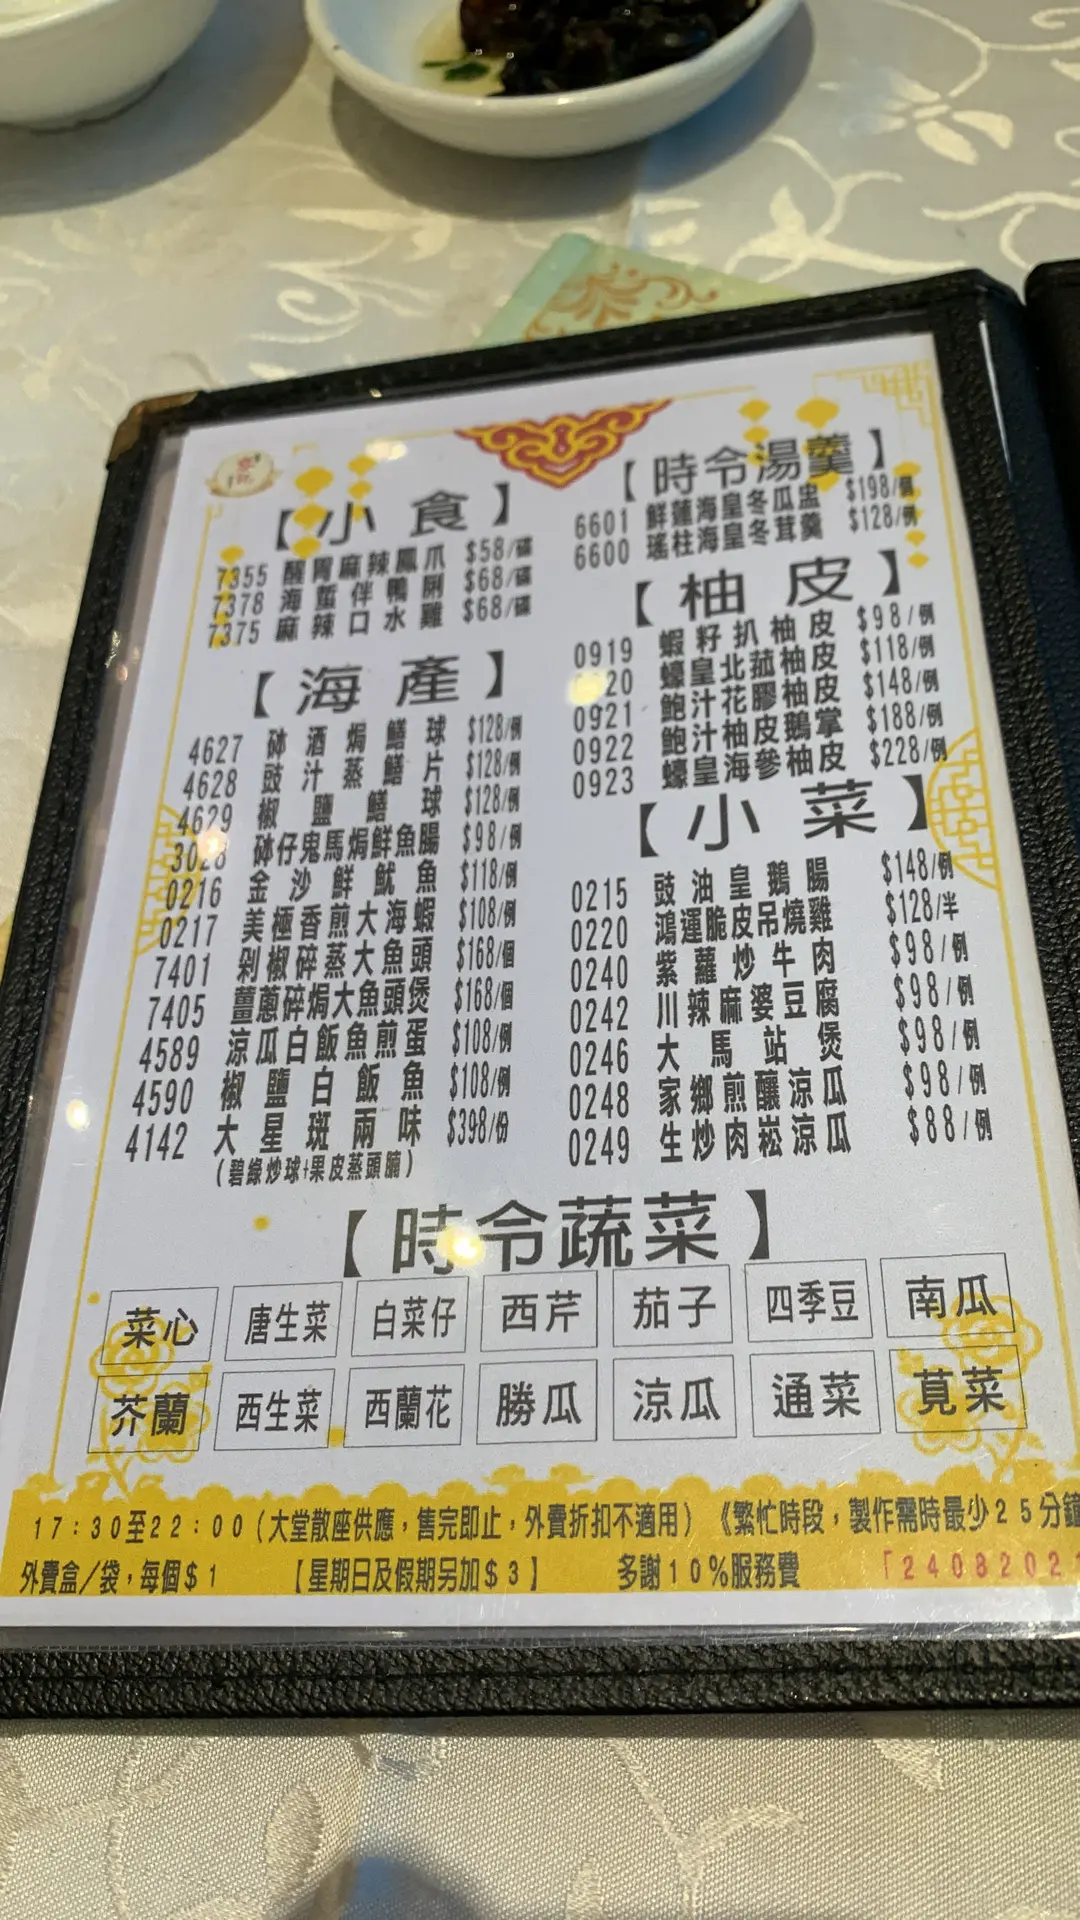 【小食】
7355 醒胃麻辣鳳爪 $58/碟
7378 海蜇伴鴨脷 $68/碟
7375 麻辣口水雞 $68/碟
【海產】
4627 砵酒焗鱔球 $128/例
4628 豉汁蒸鱔片 $128/例
4629 椒鹽鱔球 $128/例
3028 砵仔鬼馬焗鮮魚腸 $98/例
0216 金沙鮮魷魚 $118/例
0217 美極香煎大海蝦 $108/例
7401 剁椒碎蒸大魚頭 $168/個
7405 薑蔥碎焗大魚頭煲 $168/個
4589 涼瓜白飯魚煎蛋 $108/例
4590 椒鹽白飯魚 $108/例
4142 大星斑兩味 $398/份
(碧綠炒球+果皮蒸頭腩)
【時令湯羹】
6601 鮮蓮海皇冬瓜盅 $198/個
6600 瑤柱海皇冬茸羹 $128/例
【柚皮】
0919 蝦籽扒柚皮 $98/例
20 蠔皇北菰柚皮 $118/例
0921 鮑汁花膠柚皮 $148/例
0922 鮑汁柚皮鵝掌 $188/例
0923 蠔皇海參柚皮 $228/例
【小菜】
0215 豉油皇鵝腸 $148/例
0220 鴻運脆皮吊燒雞 $128/半
0240 紫蘿炒牛肉 $98/例
0242 川辣麻婆豆腐 $98/例
0246 大馬站煲 $98/例
0248 家鄉煎釀涼瓜 $98/例
0249 生炒肉崧涼瓜 $88/例
【時令蔬菜】
菜心 唐生菜 白菜仔 西芹 茄子 四季豆 南瓜
芥蘭 西生菜 西蘭花 勝瓜 涼瓜 通菜 莧菜
17:30至22:00(大堂散座供應，售完即止，外賣折扣不適用)《繁忙時段，製作需時最少25分鐘
外賣盒/袋，每個$1 【星期日及假期另加$3】 多謝10%服務費 「2408202